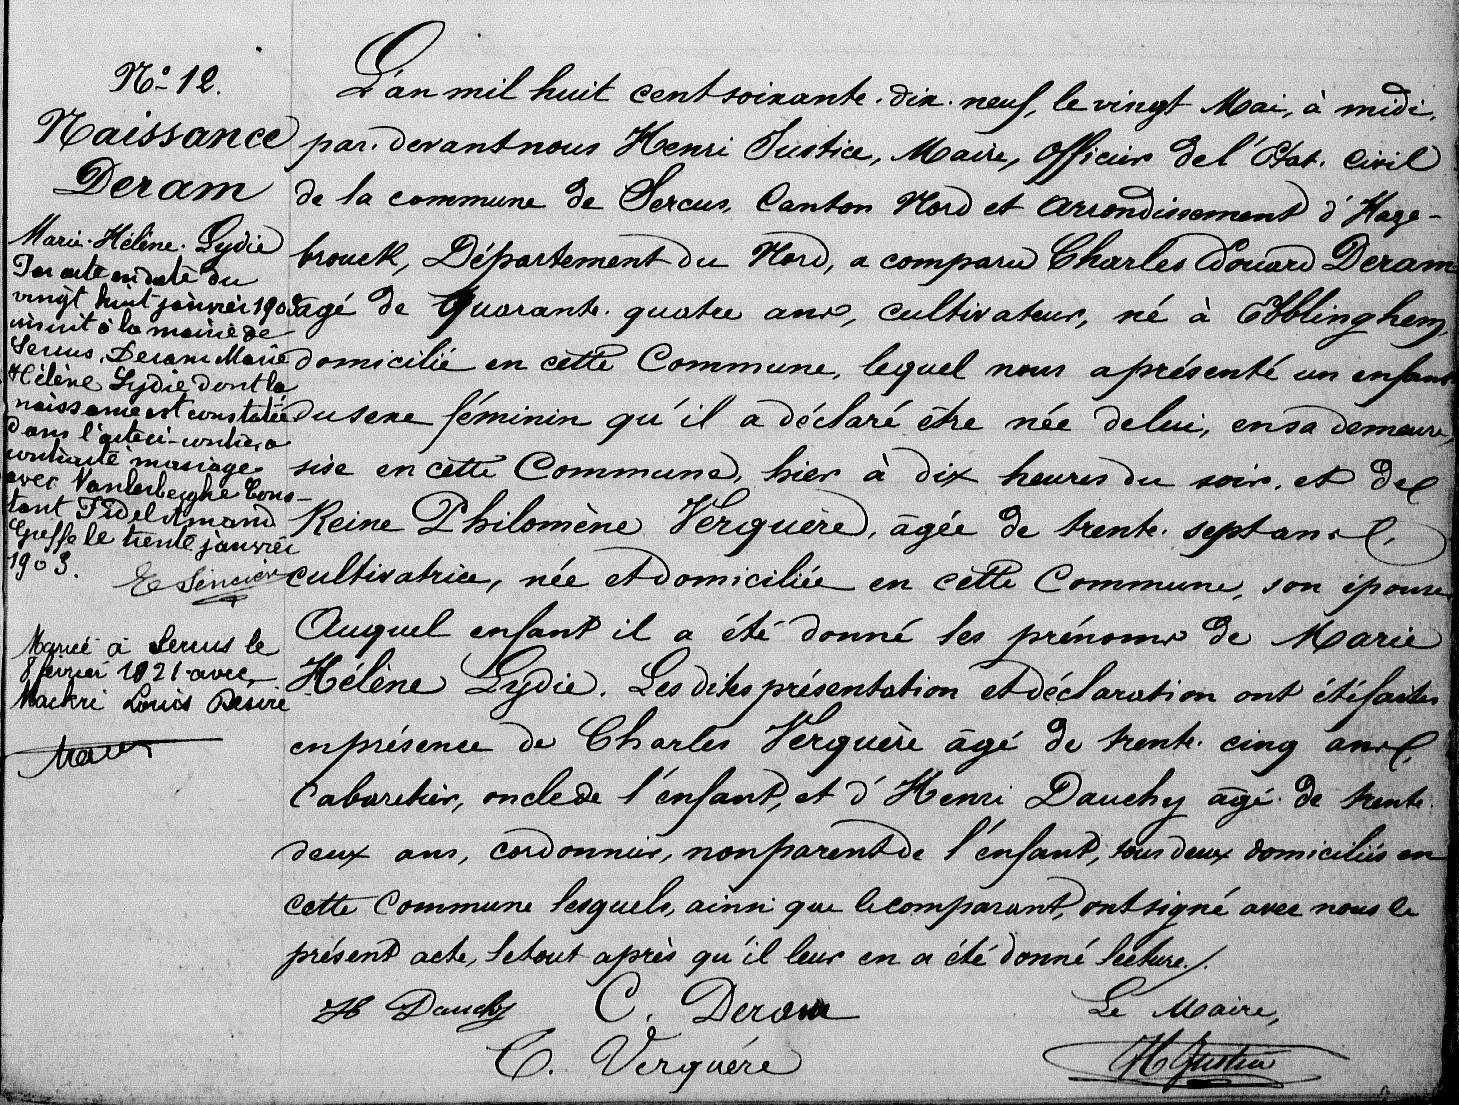 N° 12.
Naissance
Deram
Marie Hélène Lydie
Par acte en date du
vingt huit janvier 1903
inscrit à la mairie de
Sercus, Deram Marie
Hélène Lydie dont la
naissance est constatée
dans l'acte ci-contre, a
contracté mariage
avec Vanlerberghe Cons-
tant Fidel Amand
Greffe le trente janvier
1903.
Marié à Sercus le
8 février 1921 avec
Mackré Louis Désiré
L'an mil huit cent soixante. dix. neuf, le vingt Mai, à midi,
par. devant nous Henri Justice, Maire, Officier de l'Etat. Civil
de la commune de Sercus, Canton Nord et arrondissement d'Haze-
brouck, Département du Nord, a comparu Charles Edouard Deram
âgé de Quarante. quatre ans, cultivateur, né à Ebblinghem,
domicilié en cette Commune, lequel nous a présenté un enfant
du sexe féminin qu'il a déclaré être née de lui, en sa demeure,
sise en cette Commune, hier à dix heures du soir, et de
Reine Philomène Verquère, âgée de trente. sept ans,
cultivatrice, née et domiciliée en cette Commune, son épouse
Auquel enfant il a été donné les prénoms de Marie
Hélène Lydie. Les dites présentation et déclaration ont été faites
en présence de Charles Verquère âgé de trente. cinq ans,
Cabaretier, oncle de l'enfant, et d'Henri Dauchy âgé de trente.
deux ans, cordonnier, non parent de l'enfant, tous deux domiciliés en
cette Commune lesquels, ainsi que le comparant, ont signé avec nous le
présent acte, le tout après qu'il leur en a été donné lecture./.
H Dauchy C. Deram Le Maire,
C. Verquére H Justice